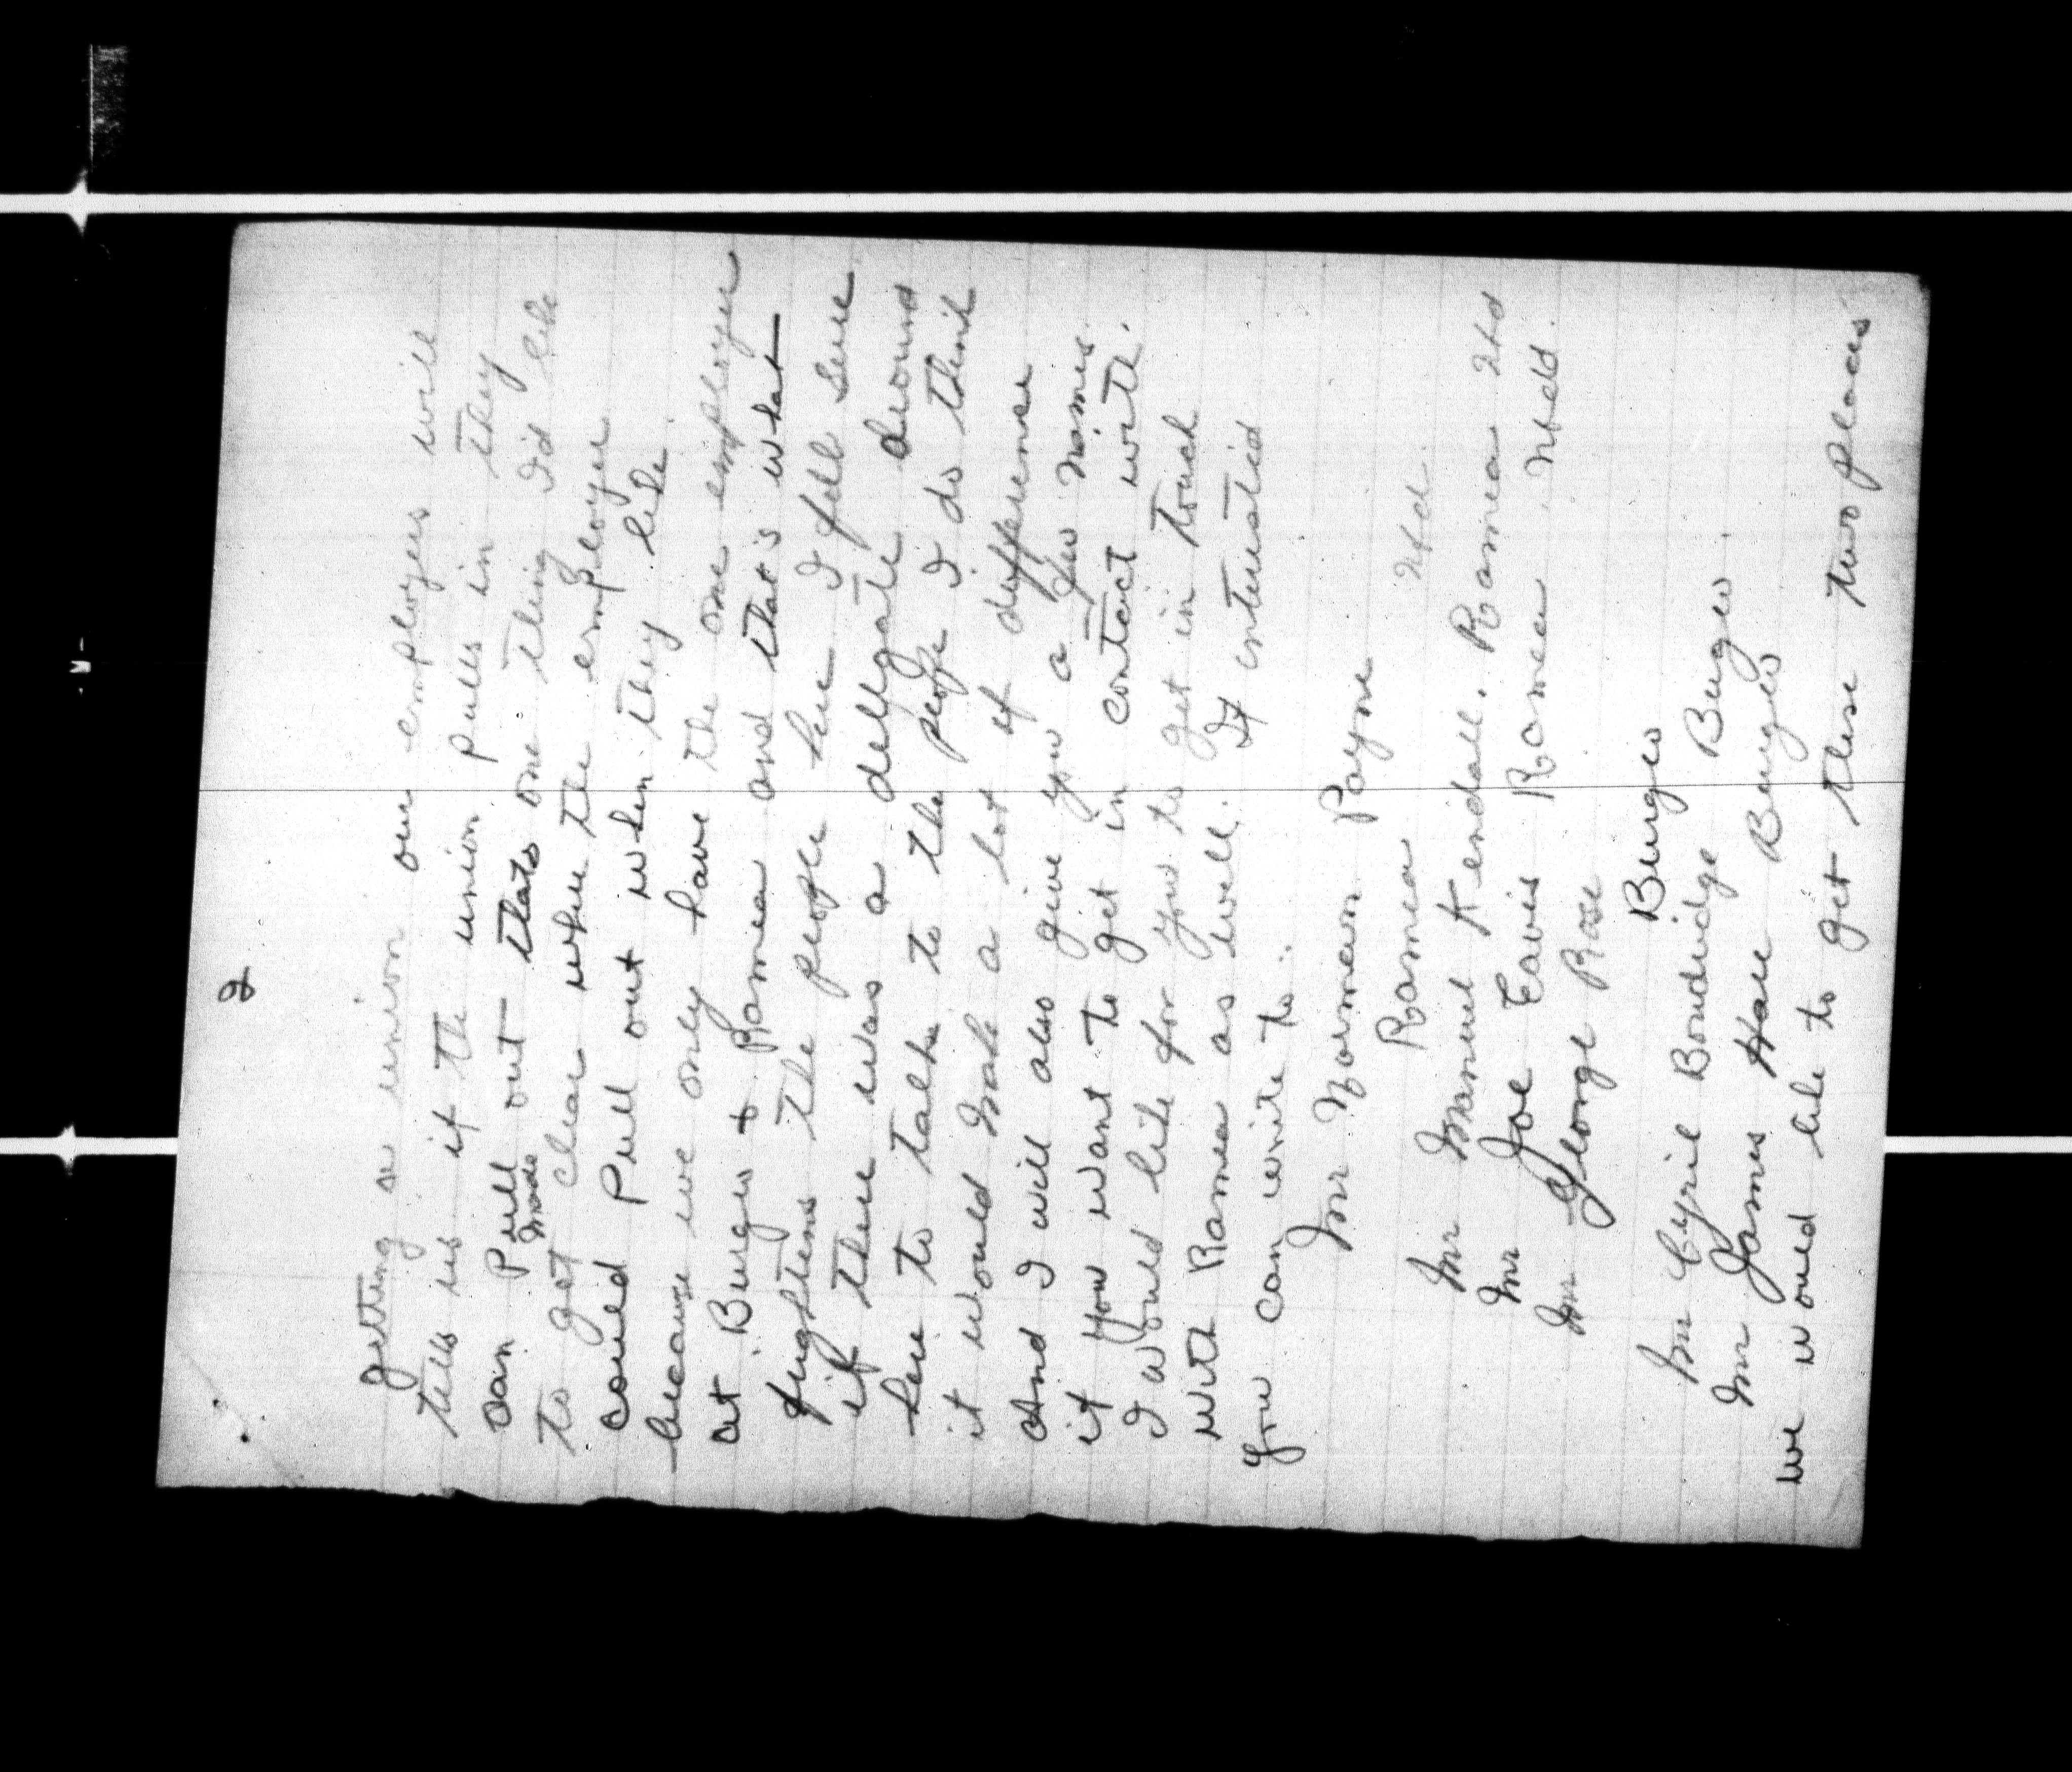 2
getting a union our employer will
tells us if the union pulls in they
can Pull out thats one thing I'd like
made
to get clear where the employer
could Pull out when they like
because we only have the one employer
at Burgeo & Ramea and that's what
frightens the people here I fell sure
if there was a dellgate around
here to talk to the people I do think
it would make a lot of difference
And I will also give you a few names
if you want to get in contact with.
I would like for you to get in touch
with Ramea as well. If intersted
you can write to.
Mr Norman Payne
Ramea Nfld.
Mr Manuel Kendall. Ramea Nfd
Mr Joe Eavis Ramea Nfdd.
Mr George Rose
Burgeo
Mr Cyril Boudridge Burgeo.
Mr James Hare Burgeo
we would like to get these two places